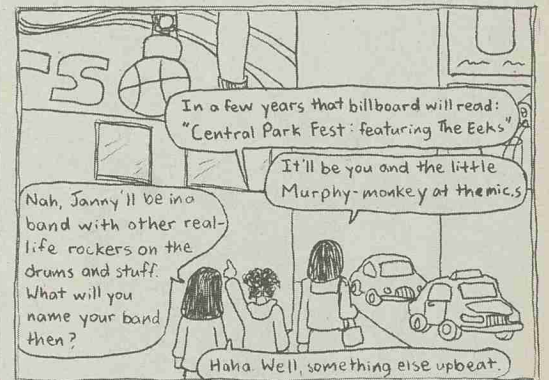 TS
In a few years that billboard will read:
"Central Park Fest: featuring The Eeks"
It'll be you and the little
Murphy-monkey at the mic.s
Nah, Janny'll be in a
band with other real-
life rockers on the
drums and stuff.
What will you
name your band
then?
Haha. Well, something else upbeat.